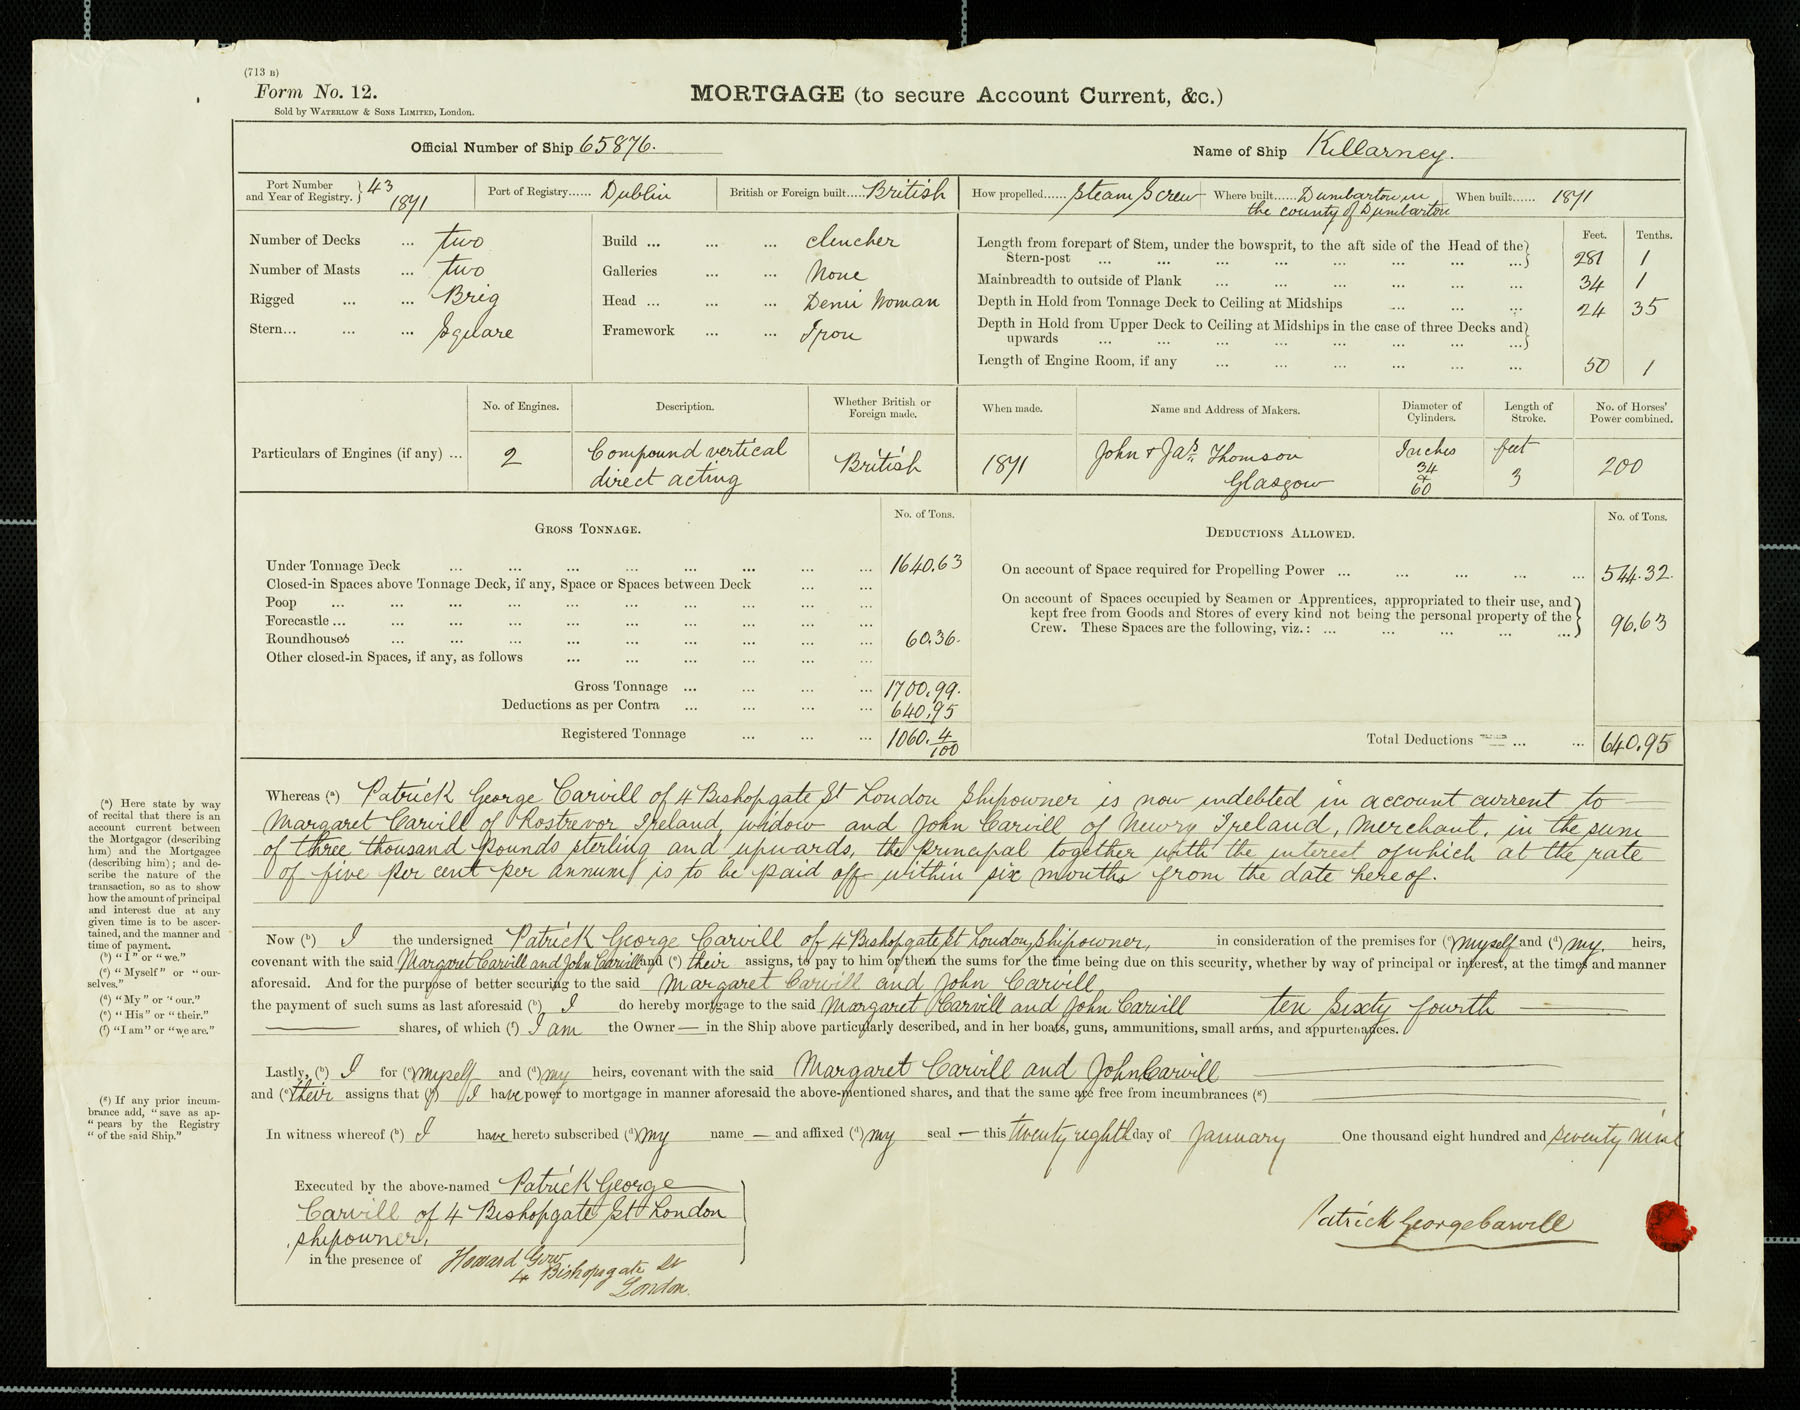 (713 B)
Form No. 12.
Sold by WATERLOW & SONS LIMITED, London.
MORTGAGE (to secure Account Current, &c.)
Official Number of Ship 65876.
Name of Ship Killarney.
Port Number and Year of Registry. } 43 1871
Port of Registry...... Dublin
British or Foreign built.... British
How propelled...... Steam Screw
Where built...... Dumbarton in the county of Dumbarton
When built...... 1871
Number of Decks ... two
Number of Masts ... two
Rigged ... ... Brig
Stern... ... ... Square
Build ... ... ... clencher
Galleries ... ... None
Head ... ... ... Demi Woman
Framework ... ... Iron
Feet. Tenths.
Length from forepart of Stem, under the bowsprit, to the aft side of the Head of the
Stern-post ... ... ... ... ... ... ... ...} 281 1
Mainbreadth to outside of Plank ... ... ... ... ... ... 34 1
Depth in Hold from Tonnage Deck to Ceiling at Midships ... ... ... 24 35
Depth in Hold from Upper Deck to Ceiling at Midships in the case of three Decks and
upwards ... ... ... ... ... ... ... ...}
Length of Engine Room, if any ... ... ... ... ... ... 50 1
Particulars of Engines (if any) ...
No. of Engines.
2
Description.
Compound vertical
direct acting
Whether British or
Foreign made.
British
When made.
1871
Name and Address of Makers.
John & Jas. Thomson
Glasgow
Diameter of
Cylinders.
Inches
34
&
60
Length of
Stroke.
feet
3
No. of Horses'
Power combined.
200
GROSS TONNAGE.
No. of Tons.
Under Tonnage Deck ... ... ... ... ... ... ... ... 1640.63
Closed-in Spaces above Tonnage Deck, if any, Space or Spaces between Deck ... ...
Poop ... ... ... ... ... ... ... ... ... ...
Forecastle ... ... ... ... ... ... ... ... ... ...
Roundhouses ... ... ... ... ... ... ... ... ... 60.36.
Other closed-in Spaces, if any, as follows ... ... ... ... ... ...
Gross Tonnage ... ... ... ... 1700.99.
Deductions as per Contra ... ... ... ... 640.95
Registered Tonnage ... ... ... 1060. 4/100
DEDUCTIONS ALLOWED.
No. of Tons.
On account of Space required for Propelling Power ... ... ... ... ... 544.32.
On account of Spaces occupied by Seamen or Apprentices, appropriated to their use, and
kept free from Goods and Stores of every kind not being the personal property of the
Crew. These Spaces are the following, viz.: ... ... ... ... ...} 96.63
Total Deductions ... ... 640.95
(a) Here state by way
of recital that there is an
account current between
the Mortgagor (describing
him) and the Mortgagee
(describing him); and de-
scribe the nature of the
transaction, so as to show
how the amount of principal
and interest due at any
given time is to be ascer-
tained, and the manner and
time of payment.
(b) "I" or "we."
(c) "Myself" or "our-
selves."
(d) "My" or "our."
(e) "His" or "their."
(f) "I am" or "we are."
(g) If any prior incum-
brance add, "save as ap-
"pears by the Registry
"of the said Ship."
Whereas (a) Patrick George Carvill of 4 Bishopgate St London Shipowner is now indebted in account current to
Margaret Carvill of Rostrevor Ireland widow and John Carvill of Newry Ireland, Merchant, in the sum
of three thousand pounds sterling and upwards, the principal together with the interest of which at the rate
of five per cent per annum is to be paid off within six months from the date hereof.
Now (b) I the undersigned Patrick George Carvill of 4 Bishopgate St London, Shipowner, in consideration of the premises for (c) myself and (d) my. heirs,
covenant with the said Margaret Carvill and John Carvill and (e) their assigns, to pay to him or them the sums for the time being due on this security, whether by way of principal or interest, at the times and manner
aforesaid. And for the purpose of better securing to the said Margaret Carvill and John Carvill
the payment of such sums as last aforesaid (b) I do hereby mortgage to the said Margaret Carvill and John Carvill ten Sixty fourth
shares, of which (f) I am the Owner — in the Ship above particularly described, and in her boats, guns, ammunitions, small arms, and appurtenances.
Lastly, (b) I for (c) myself and (d) my heirs, covenant with the said Margaret Carvill and John Carvill
and (e) their assigns that (b) I have power to mortgage in manner aforesaid the above-mentioned shares, and that the same are free from incumbrances (g)
In witness whereof (b) I have hereto subscribed (d) my name — and affixed (d) my seal — this twenty eighth day of January One thousand eight hundred and seventy nine
Executed by the above-named Patrick George
Carvill of 4 Bishopgate St London
shipowner,
in the presence of Howard Gow
4 Bishopsgate St
London.
Patrick George Carvill